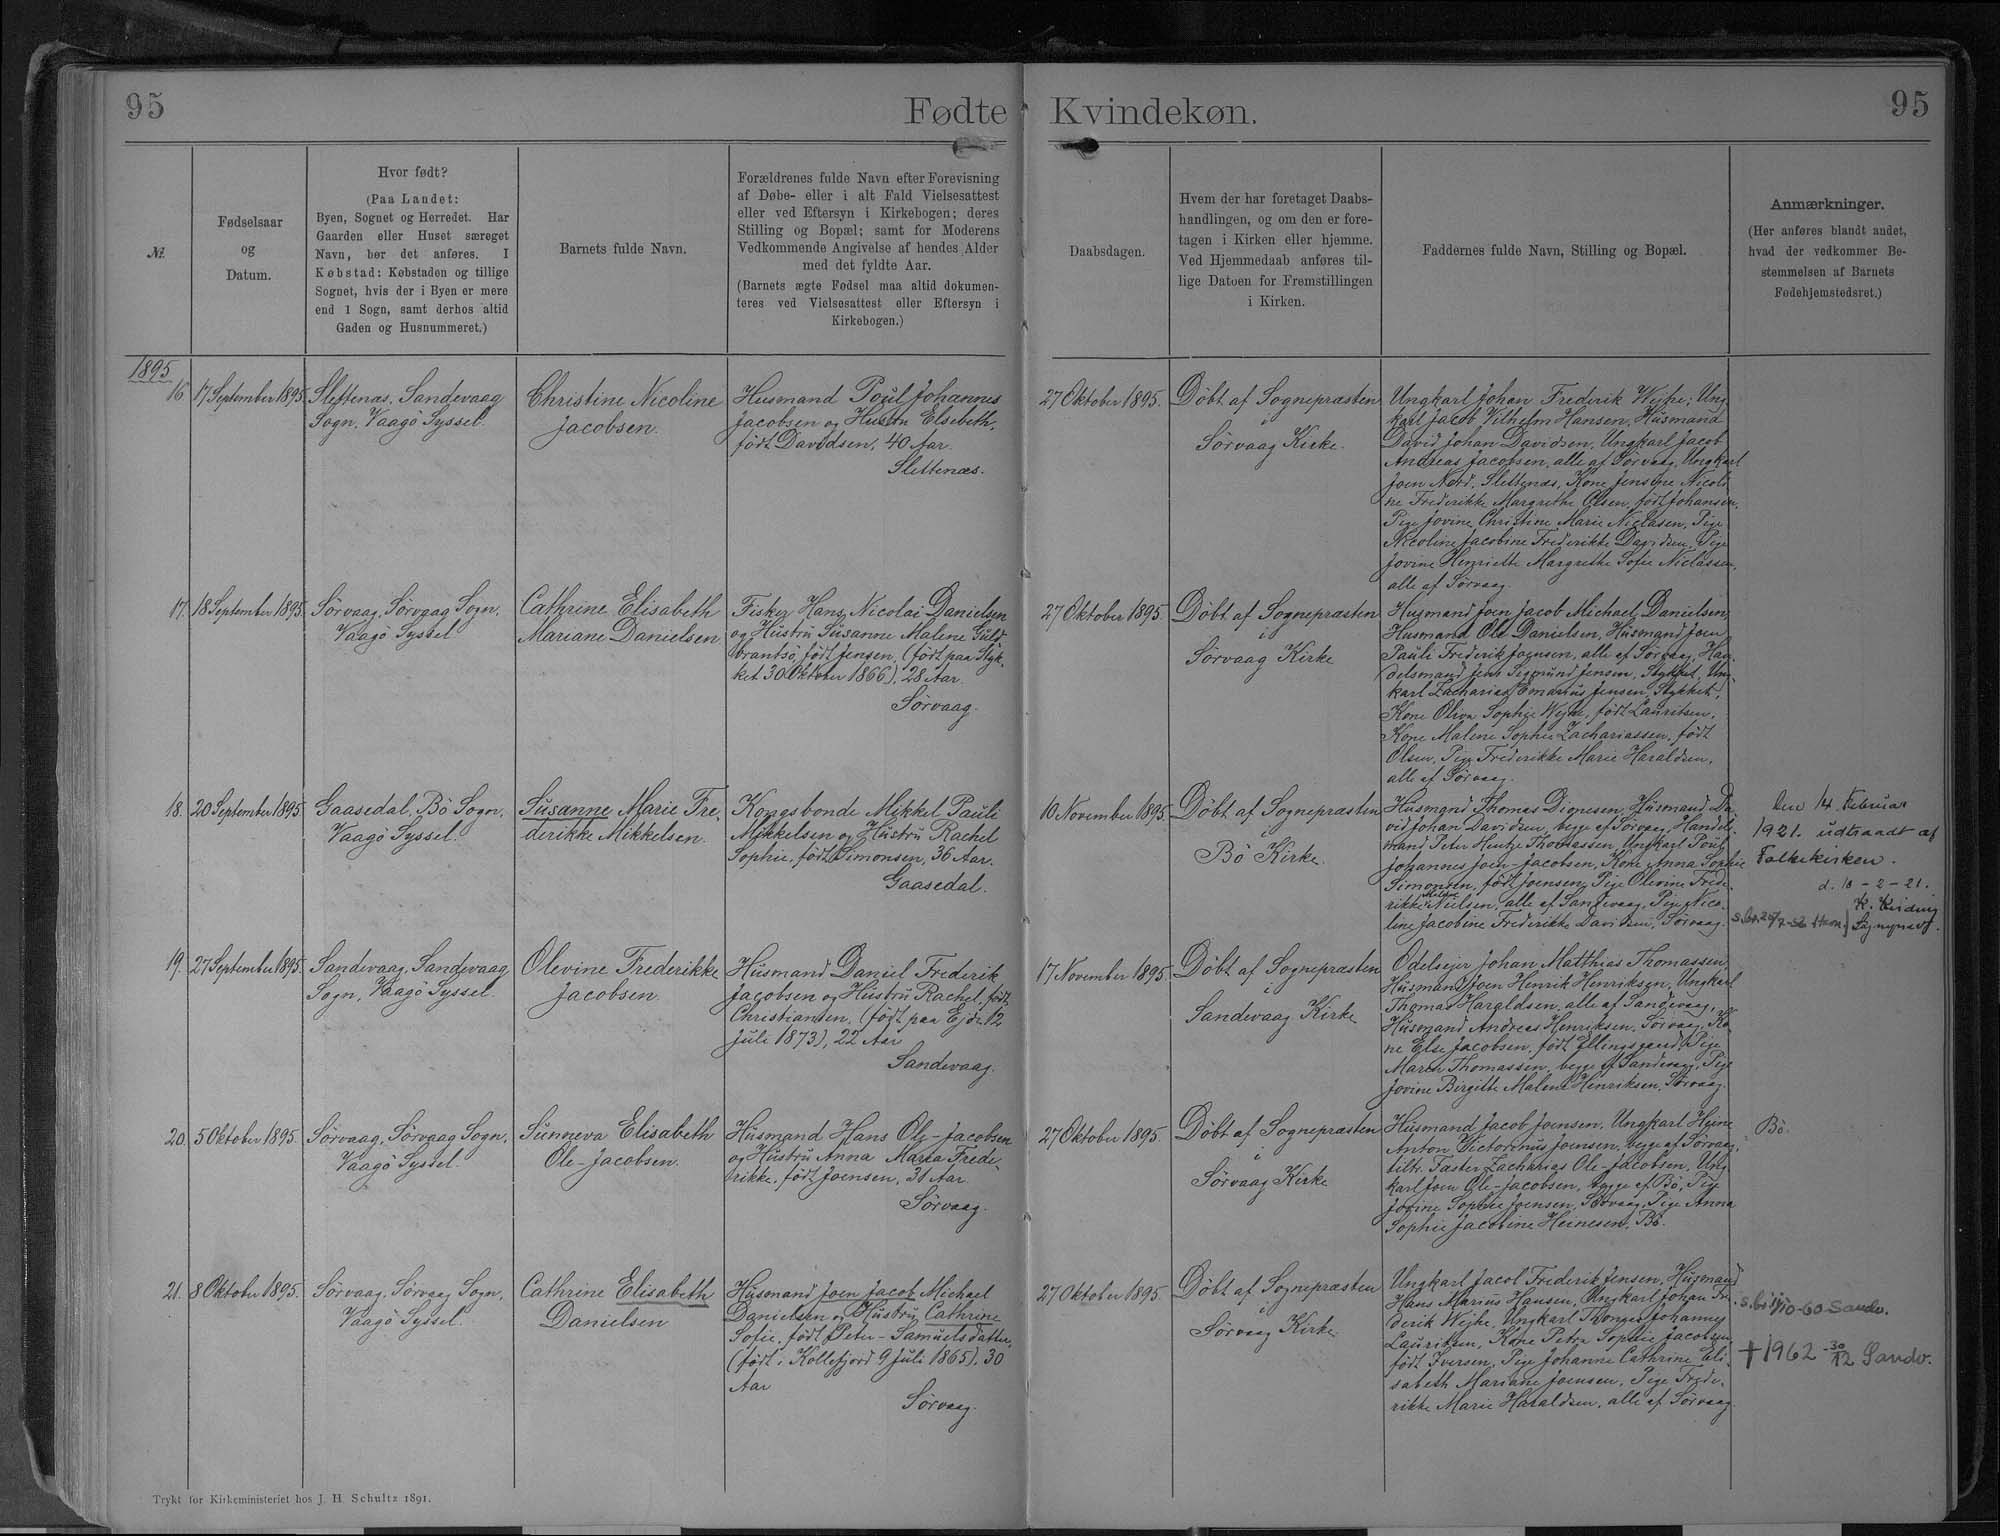 95
Fødte
Kvindekøn.
95
№.
Fødselsaar
og
Datum.
Hvor født?
(Paa Landet:
Byen, Sognet og Herredet. Har
Gaarden eller Huset særeget
Navn, bør det anføres. I
Købstad: Købstaden og tillige
Sognet, hvis der i Byen er mere
end 1 Sogn, samt derhos altid
Gaden og Husnummeret.)
Barnets fulde Navn.
Forældrenes fulde Navn efter Forevisning
af Døbe- eller i alt Fald Vielsesattest
eller ved Eftersyn i Kirkebogen; deres
Stilling og Bopæl; samt for Moderens
Vedkommende Angivelse af hendes Alder
med det fyldte Aar.
(Barnets ægte Fødsel maa altid dokumen-
teres ved Vielsesattest eller Eftersyn i
Kirkebogen.)
Daabsdagen.
Hvem der har foretaget Daabs-
handlingen, og om den er fore-
tagen i Kirken eller hjemme.
Ved Hjemmedaab anføres til-
lige Datoen for Fremstillingen
i Kirken.
Faddernes fulde Navn, Stilling og Bopæl.
Anmærkninger.
(Her anføres blandt andet,
hvad der vedkommer Be-
stemmelsen af Barnets
Fødehjemstedsret.)
1895
16
17 September 1895
Slettenæs, Sandevaag
Sogn, Vaagö Syssel.
Christine Nicoline
Jacobsen.
Husmand Poul Johannes
Jacobsen og Hustru Elsebeth,
født Davidsen, 40 Aar.
Slettenæs.
27 Oktober 1895.
Döbt af Sognepræsten
i
Sörvaag Kirke.
Ungkarl Johan Frederik Wejhe; Ung-
karl Jacob Vilhelm Hansen, Husmand
David Johan Davidsen, Ungkarl Jacob
Andreas Jacobsen, alle af Sörvaag, Ungkarl
Joen Nord, Slettenæs, Kone Jensine Nicoli-
ne Frederikke Margrethe Olsen, født Johansen,
Pige Jovine Christine Marie Niclasen, Pige
Nicoline Jacobine Frederikke Davidsen, Pige
Jovine Henriette Margrethe Sofie Niclassen,
alle af Sörvaag.
17.
18 September 1895
Sörvaag, Sörvaag Sogn,
Vaagö Syssel
Cathrine Elisabeth
Mariane Danielsen
Fisker Hans Nicolai Danielsen
og Hustru Susanne Malene Guld-
brantsö, født Jensen, (født paa Styk-
ket 30 Oktober 1866), 28 Aar.
Sörvaag.
27 Oktober 1895.
Döbt af Sognepræsten
i
Sörvaag Kirke
Husmand Joen Jacob Michael Danielsen,
Husmand Ole Danielsen, Husmand Joen
Pauli Frederik Joensen, alle af Sörvaag, Han-
delsmand Jens Sigmund Jensen, Stykket, Un-
karl Zacharias Emarius Jensen, Stykket,
Kone Oliva Sophie Wejhe, født Lauritsen,
Kone Malene Sophie Zachariassen, født
Olsen, Pige Frederikke Marie Haraldsen,
alle af Sörvaag.
18.
20 September 1895
Gaasedal, Bö Sogn,
Vaagö Syssel.
Susanne Marie Fre-
derikke Mikkelsen.
Kongsbonde Mikkel Pauli
Mikkelsen og Hustru Rachel
Sophie, født Simonsen, 36 Aar.
Gaasedal.
10 November 1895.
Döbt af Sognepræsten
i
Bö Kirke.
Husmand Thomas Dionesen, Husmand Da-
vid Johan Davidsen, begge af Sörvaag, Handels-
mand Peter Hentze Thomassen, Ungkarl Poul
Johannes Joen-Jacobsen, Kone Anna Sophie
Simonsen, født Joensen, Pige Olevine Frede-
rikke Nielsen, alle af Sandevaag, Pige Nico-
line Jacobine Frederikke Davidsen, Sörvaag.
Den 14. Februar
1921. udtraadt af
Folkekirken.
d. 18-2-21.
Sognepræst.
19.
27 September 1895
Sandevaag, Sandevaag
Sogn, Vaagö Syssel.
Olevine Frederikke
Jacobsen.
Husmand Daniel Frederik
Jacobsen og Hustru Rachel, født
Christiansen, (født paa Ejde 12
Juli 1873), 22 Aar
Sandevaag.
17 November 1895.
Döbt af Sognepræsten
i
Sandevaag Kirke
Odelsejer Johan Matthias Thomassen,
Husmand Joen Henrik Henriksen, Ungkarl
Thomas Haraldsen, alle af Sandevaag,
Husmand Andreas Henriksen, Sörvaag, Ko-
ne Else Jacobsen, født Ellingsgaard, Pige
Maren Thomassen, begge af Sandevaag, Pige
Jovine Bergitte Malene Henriksen, Sörvaag.
20.
5 Oktober 1895.
Sörvaag, Sörvaag Sogn,
Vaagö Syssel.
Sunneva Elisabeth
Ole-Jacobsen.
Husmand Hans Ole-Jacobsen
og Hustru Anna Maria Frede-
rikke, født Joensen, 31 Aar.
Sörvaag.
27 Oktober 1895.
Döbt af Sognepræsten
i
Sörvaag Kirke
Husmand Jacob Joensen, Ungkarl Hejne
Anton Victorinus Joensen, begge af Sörvaag,
Zacharias Ole-Jacobsen, Ung-
karl Joen Ole-Jacobsen, begge af Bö, Pige
Jovine Sophie Joensen, Sörvaag, Pige Anna
Sophie Jacobine Heinesen, Bö.
Bö.
21.
8 Oktober 1895.
Sörvaag, Sörvaag Sogn,
Vaagö Syssel.
Cathrine Elisabeth
Danielsen
Husmand Joen Jacob Michael
Danielsen og Hustru Cathrine
Sofie, født Peter-Samuelsdatter,
(født i Kollefjord 9 Juli 1865), 30
Aar
Sörvaag.
27 Oktober 1895.
Döbt af Sognepræsten
i
Sörvaag Kirke
Ungkarl Jacob Frederik Jensen, Husmand
Hans Marius Hansen, Ungkarl Johan Fre-
derik Wejhe, Ungkarl Thomas Johannes
Lauritsen, Kone Petra Sophie Jacobsen,
født Iversen, Pige Johanne Cathrine Eli-
sabeth Mariane Joensen, Pige Frede-
rikke Marie Haraldsen, alle af Sörvaag.
10-60 Sandv.
† 1962 30/12 Sandv.
Trykt for Kirkeministeriet hos J. H. Schultz 1891.